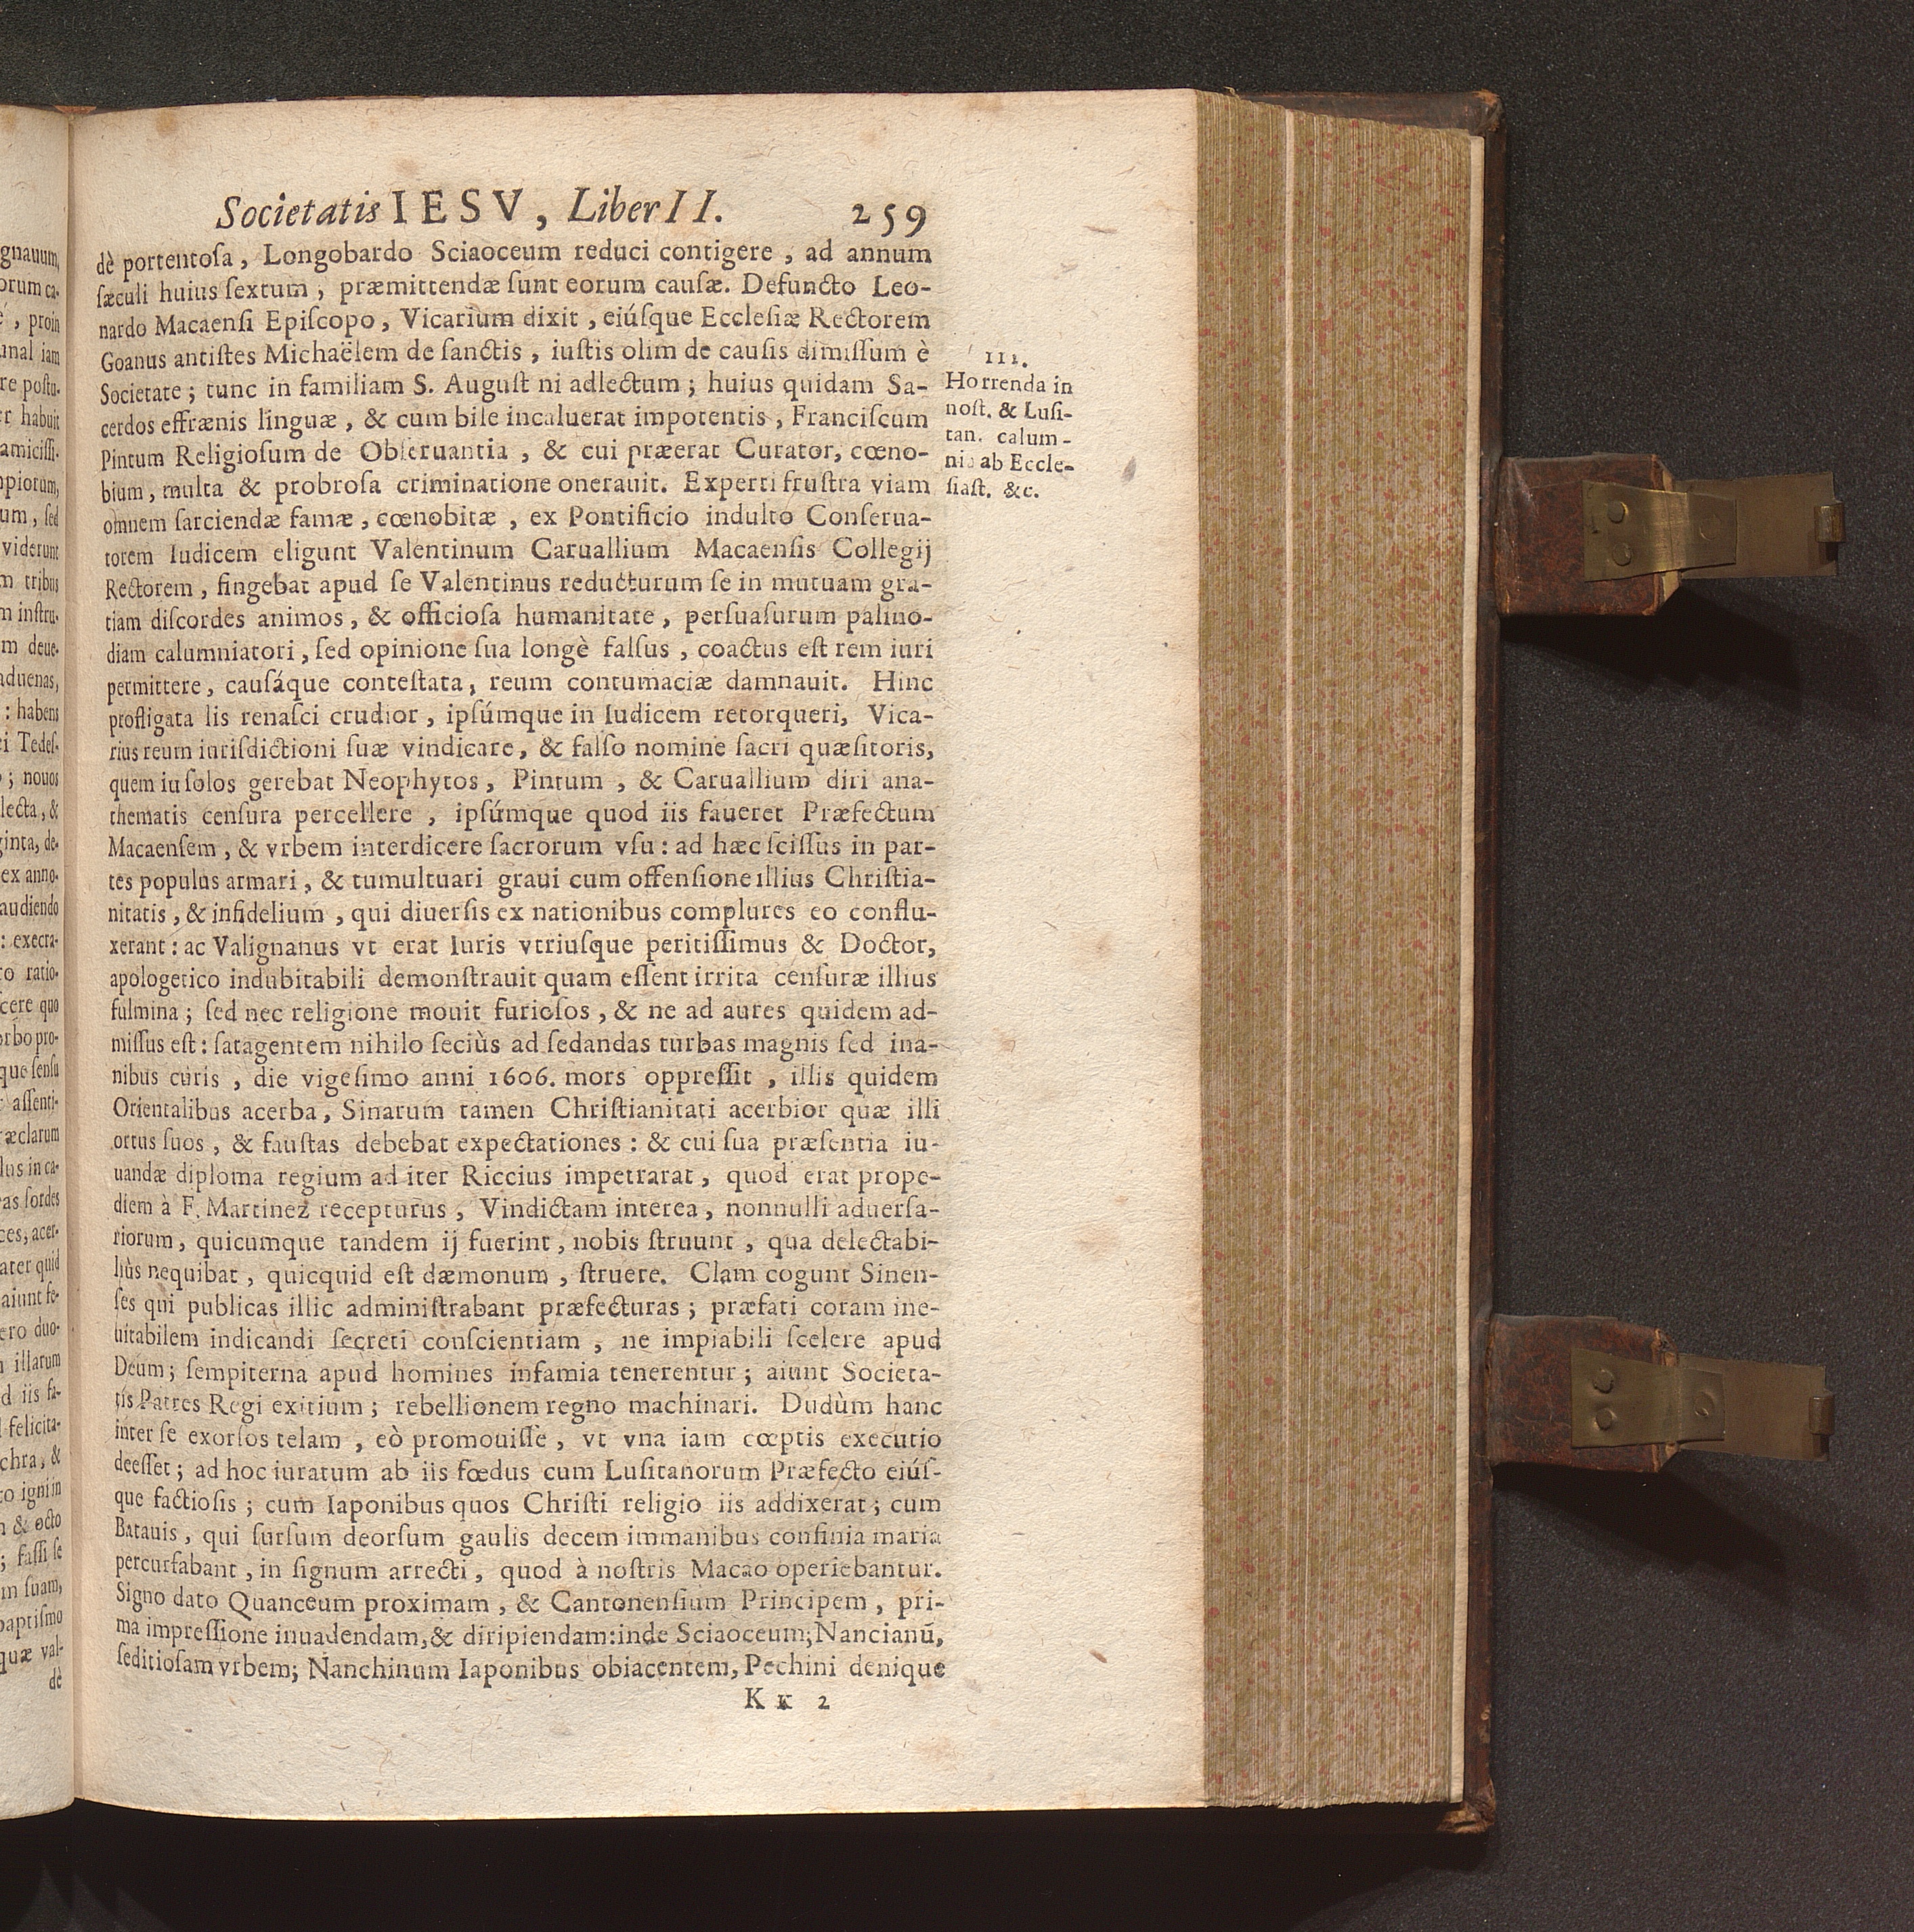 Societatis IESV, Liber II. 259
dè portentosa, Longobardo Sciaoceum reduci contigere, ad annum
sæculi huius sextum, præmittendæ sunt eorum causæ. Defuncto Leo-
nardo Macaensi Episcopo, Vicarium dixit, eiúsque Ecclesiæ Rectorem
Goanus antistes Michaëlem de sanctis, iustis olim de causis dimissum è
Societate; tunc in familiam S. August ni adlectum; huius quidam Sa-
cerdos effrænis linguæ, & cum bile incaluerat impotentis, Franciscum
Pintum Religiosum de Obseruantia, & cui præerat Curator, cœno-
bium, multa & probrosa criminatione onerauit. Experti frustra viam
omnem sarciendæ famæ, cœnobitæ, ex Pontificio indulto Conserua-
torem Iudicem eligunt Valentinum Caruallium Macaensis Collegij
Rectorem, fingebat apud se Valentinus reducturum se in mutuam gra-
tiam discordes animos, & officiosa humanitate, persuasurum palino-
diam calumniatori, sed opinione sua longè falsus, coactus est rem iuri
permittere, causáque contestata, reum contumaciæ damnauit. Hinc
profligata lis renasci crudior, ipsúmque in Iudicem retorqueri, Vica-
rius reum iurisdictioni suæ vindicare, & falso nomine sacri quæsitoris,
quem iu solos gerebat Neophytos, Pintum, & Caruallium diri ana-
thematis censura percellere, ipsúmque quod iis faueret Præfectum
Macaensem, & vrbem interdicere sacrorum vsu: ad hæc scissus in par-
tes populus armari, & tumultuari graui cum offensione illius Christia-
nitatis, & infidelium, qui diuersis ex nationibus complures eo conflu-
xerant: ac Valignanus vt erat Iuris vtriusque peritissimus & Doctor,
apologetico indubitabili demonstrauit quam essent irrita censuræ illius
fulmina; sed nec religione mouit furiosos, & ne ad aures quidem ad-
missus est: satagentem nihilo seciùs ad sedandas turbas magnis sed ina-
nibus curis, die vigesimo anni 1606. mors oppressit, illis quidem
Orientalibus acerba, Sinarum tamen Christianitati acerbior quæ illi
ortus suos, & faustas debebat expectationes: & cui sua præsentia iu-
uandæ diploma regium ad iter Riccius impetrarat, quod erat prope-
diem à F. Martinez recepturus, Vindictam interea, nonnulli aduersa-
riorum, quicumque tandem ij fuerint, nobis struunt, qua delectabi-
liùs nequibat, quicquid est dæmonum, struere. Clam cogunt Sinen-
ses qui publicas illic administrabant præfecturas; præfati coram ine-
uitabilem indicandi secreti conscientiam, ne impiabili scelere apud
Deum; sempiterna apud homines infamia tenerentur; aiunt Societa-
tis Patres Regi exitium; rebellionem regno machinari. Dudùm hanc
inter se exorsos telam, eò promouisse, vt vna iam cœptis executio
deesset; ad hoc iuratum ab iis fœdus cum Lusitanorum Præfecto eiús-
que factiosis; cum Iaponibus quos Christi religio iis addixerat; cum
Batauis, qui sursum deorsum gaulis decem immanibus confinia maria
percursabant, in signum arrecti, quod à nostris Macao operiebantur.
Signo dato Quanceum proximam, & Cantonensium Principem, pri-
ma impressione inuadendam, & diripiendam: inde Sciaoceum; Nancianū,
seditiosam vrbem; Nanchinum Iaponibus obiacentem, Pechini denique
K K 2
III.
Horrenda in
nost. & Lusi-
tan. calum-
nia ab Eccle-
siast. &c.